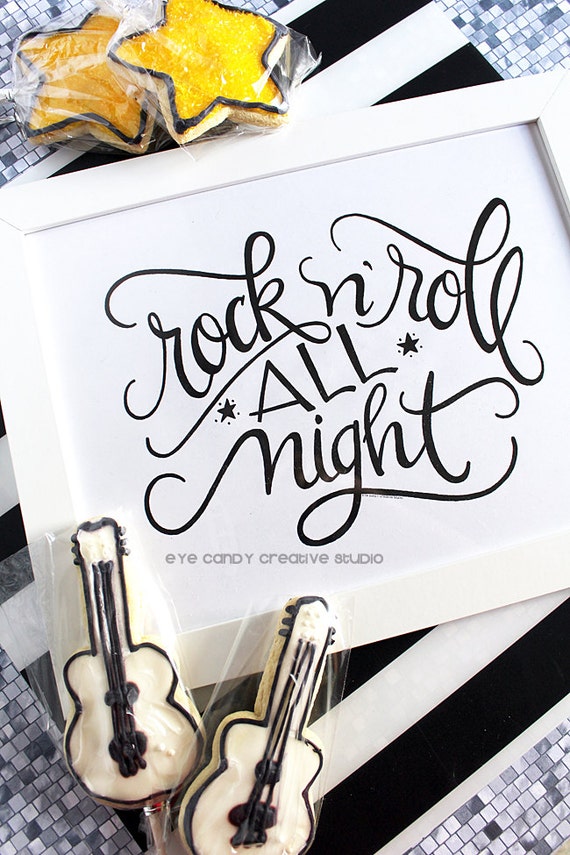 rock 'n' roll
ALL
night
EYE CANDY CREATIVE STUDIO